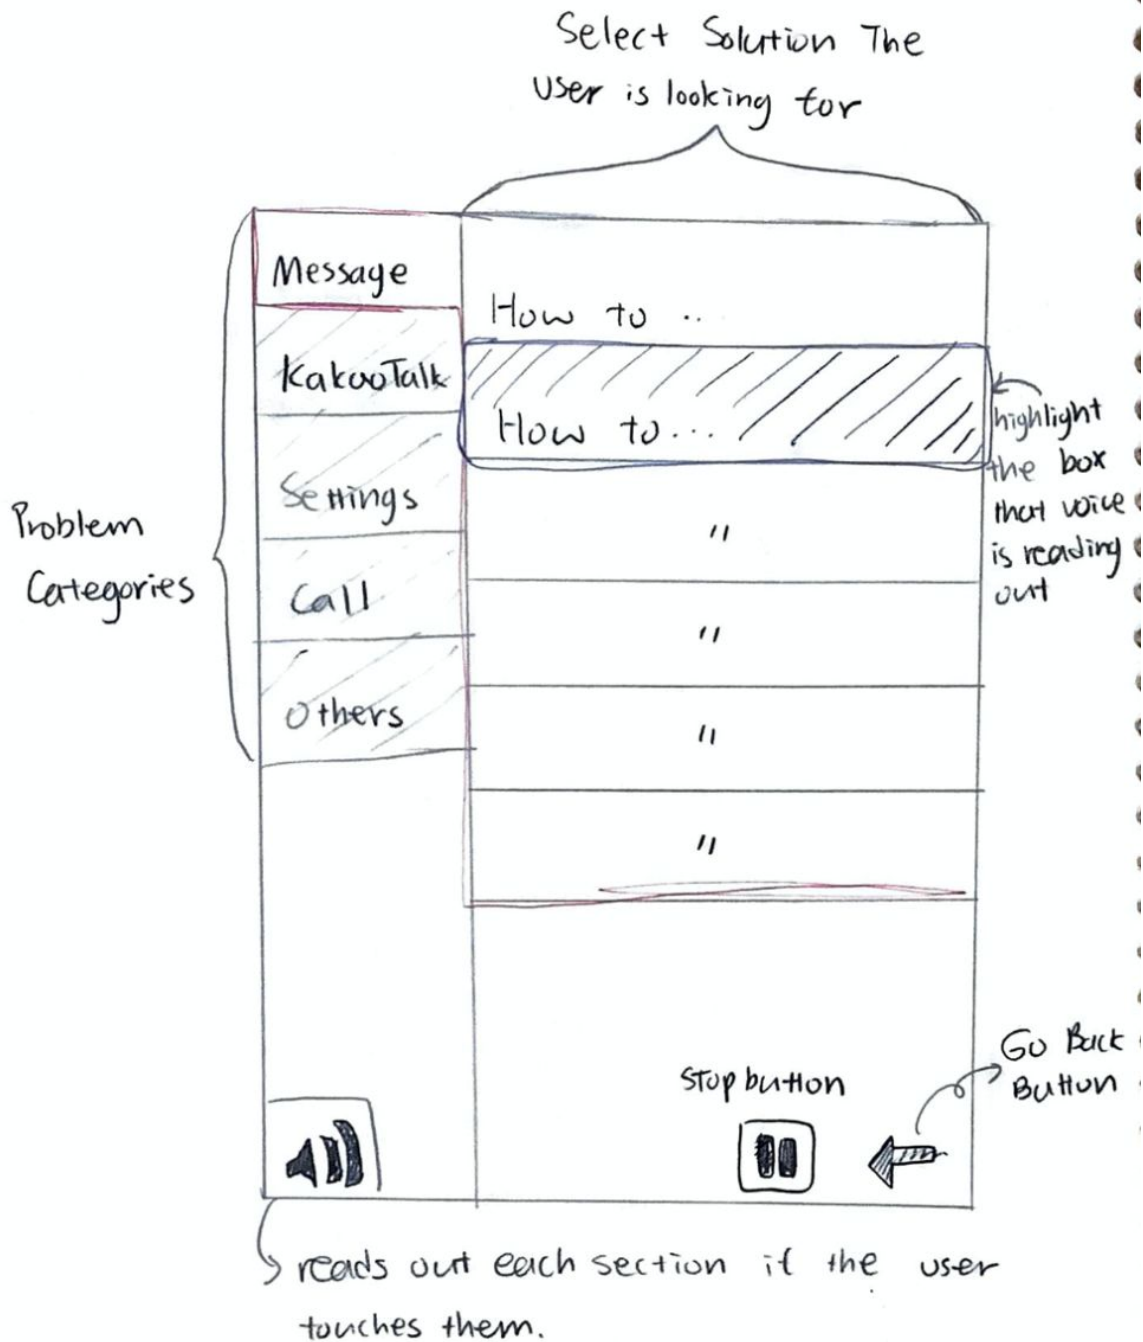 Select Solution The
user is looking for
Message
KakaoTalk
Settings
Call
Others
How to ..
How to...
"
"
"
"
Problem
Categories
highlight
the box
that voice
is reading
out
Stop button
Go Back
Button
reads out each section if the user
touches them.